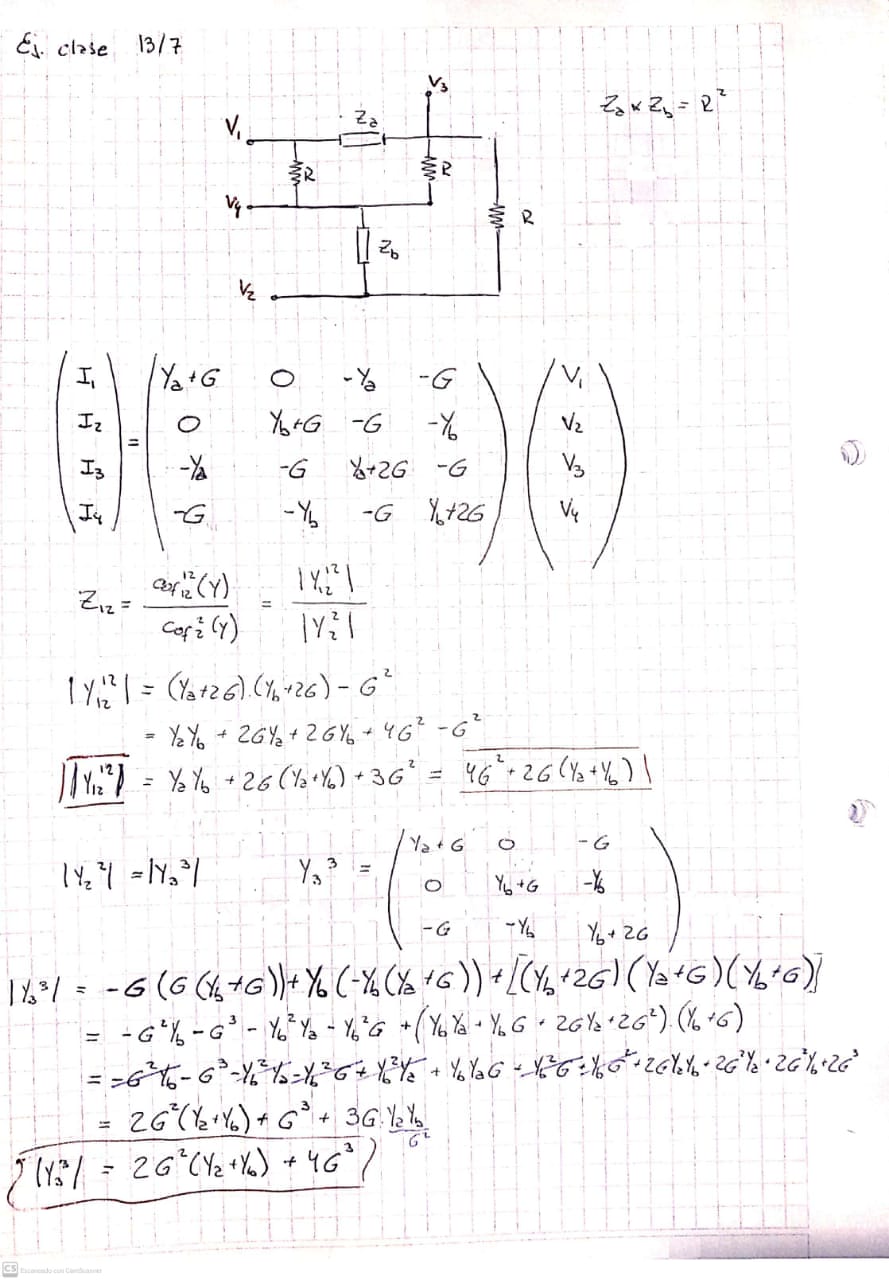 Ej. clase 13/7
V₃
Za
Za × Zb = R²
V₁
R
R
V₄
R
Zb
V₂
(I₁) = (Ya+G 0 -Ya -G) (V₁)
(I₂) (0 Yb+G -G -Yb) (V₂)
(I₃) (-Ya -G Ya+2G -G) (V₃)
(I₄) (-G -Yb -G Yb+2G) (V₄)
Z₁₂ = cof¹²₁₂(Y) / cof²₂(Y) = |Y¹²₁₂| / |Y²₂|
|Y¹²₁₂| = (Ya+2G).(Yb+2G) - G²
= YaYb + 2GYa + 2GYb + 4G² - G²
|Y¹²₁₂| = YaYb + 2G(Ya+Yb) + 3G² = 4G² + 2G(Ya+Yb)
|Y₂²| = |Y₃³| Y₃³ = (Ya+G 0 -G)
(0 Yb+G -Yb)
(-G -Yb Yb+2G)
|Y₃³| = -G(G(Yb+G)) + Yb(-Yb(Ya+G)) + [(Yb+2G)(Ya+G)(Yb+G)]
= -G²Yb - G³ - Yb²Ya - Yb²G + (YbYa + YbG + 2GYa + 2G²).(Yb+G)
= -G²Yb - G³ - Yb²Ya - Yb²G + Yb²Ya + YbYaG + Yb²G + YbG² + 2GYaYb + 2G²Ya + 2G²Yb + 2G³
= 2G²(Ya+Yb) + G³ + 3G.YaYb
G²
|Y₃³| = 2G²(Ya+Yb) + 4G³
CS Escaneado con CamScanner